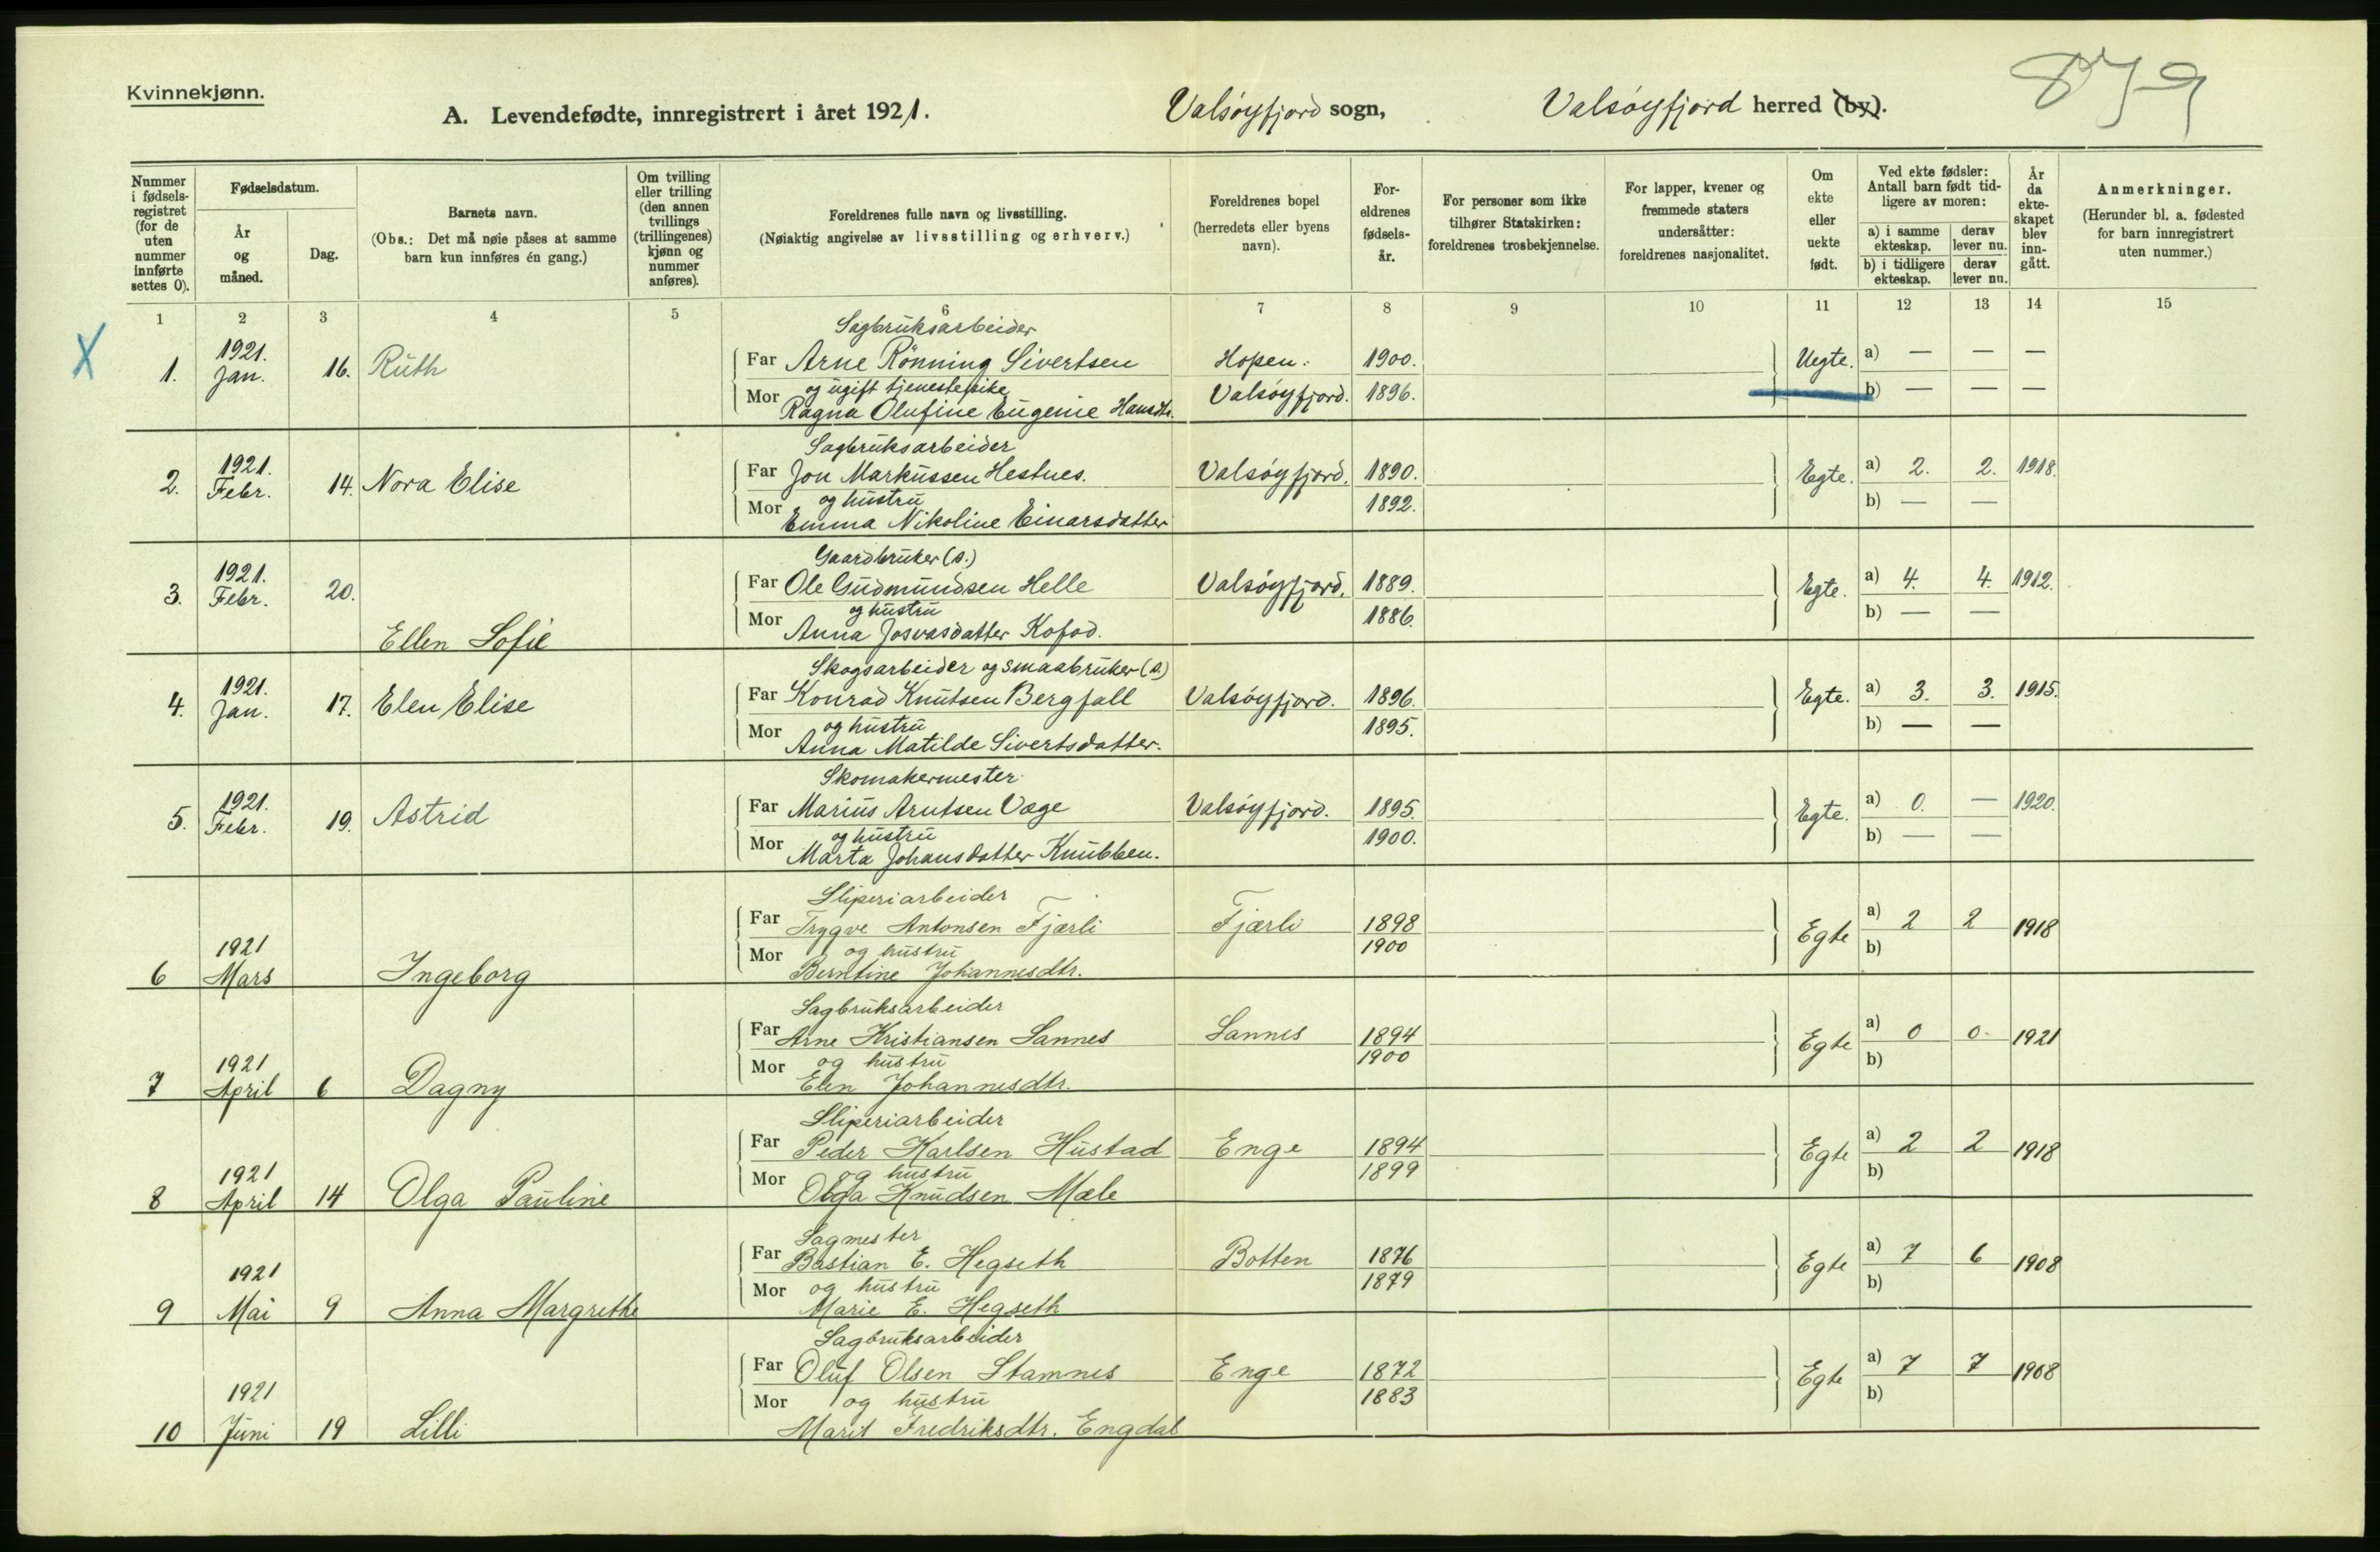 Kvinnekjønn.
879
A. Levendefødte, innregistrert i året 1921. Valsøyfjord sogn, Valsøyfjord herred (by).
Nummer i fødselsregistret (for de uten nummer innførte settes 0).
Fødselsdatum.
År og måned.
Dag.
Barnets navn.
(Obs.: Det må nøie påses at samme barn kun innføres én gang.)
Om tvilling eller trilling (den annen tvillings (trillingenes) kjønn og nummer anføres).
Foreldrenes fulle navn og livsstilling.
(Nøiaktig angivelse av livsstilling og erhverv.)
Foreldrenes bopel (herredets eller byens navn).
Foreldrenes fødselsår.
For personer som ikke tilhører Statskirken: foreldrenes trosbekjennelse.
For lapper, kvener og fremmede staters undersåtter: foreldrenes nasjonalitet.
Om ekte eller uekte født.
Ved ekte fødsler: Antall barn født tidligere av moren:
a) i samme ekteskap. derav lever nu.
b) i tidligere ekteskap. derav lever nu.
År da ekteskapet blev inngått.
Anmerkninger.
(Herunder bl. a. fødested for barn innregistrert uten nummer.)
1 2 3 4 5 6 7 8 9 10 11 12 13 14 15
X
Sagbruksarbeider
1. 1921. Jan. 16. Ruth Far Arne Rønning Sivertsen Hopen. 1900. Uegte. a) — — —
og ugift tjenestepike
Mor Ragna Olufine Eugenie Hansdtr. Valsøyfjord. 1896. b) — — —
Sagbruksarbeider
2. 1921. Febr. 14. Nora Elise Far Jon Markussen Hestnes. Valsøyfjord. 1890. Egte. a) 2. 2. 1918.
og hustru
Mor Emma Nikoline Einarsdatter 1892. b) — —
Gaardbruker (s.)
3. 1921. Febr. 20. Ellen Sofie Far Ole Gudmundsen Helle Valsøyfjord. 1889. Egte. a) 4. 4. 1912.
og hustru
Mor Anna Josvasdatter Kofod. 1886. b) — —
Skogsarbeider og smaabruker (s.)
4. 1921. Jan. 17. Elen Elise Far Konrad Knutsen Bergfall Valsøyfjord. 1896. Egte. a) 3. 3. 1915.
og hustru
Mor Anna Matilde Sivertsdatter. 1895. b) — —
Skomakermester
5. 1921. Febr. 19. Astrid Far Marius Arntsen Vage Valsøyfjord. 1895. Egte. a) 0. — 1920.
og hustru
Mor Marta Johansdatter Knubben. 1900. b) — —
Sliperiarbeider
6 1921 Mars Ingeborg Far Trygve Antonsen Fjærli Fjærli 1898 Egte a) 2 2 1918
og hustru
Mor Berntine Johannesdtr. 1900 b)
Sagbruksarbeider
7 1921 April 6 Dagny Far Arne Kristiansen Sannes Sannes 1894 Egte a) 0 0 1921
og hustru
Mor Elen Johannesdtr. 1900 b)
Sliperiarbeider
8 1921 April 14 Olga Pauline Far Peder Karlsen Hustad Enge 1894 Egte a) 2 2 1918
og hustru
Mor Olga Knudsen Mæle 1899 b)
Sagmester
9 1921 Mai 9 Anna Margrethe Far Bastian E. Hegseth Botten 1876 Egte a) 7 6 1908
og hustru
Mor Marie E. Hegseth 1879 b)
Sagbruksarbeider
10 1921 Juni 19 Lilli Far Oluf Olsen Stamnes Enge 1872 Egte a) 7 7 1908
og hustru
Mor Marit Fredriksdtr. Engdal 1883 b)